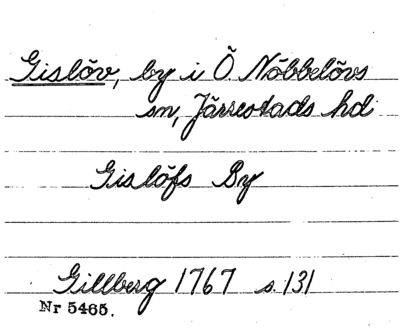 Gislöv, by i Ö Nöbbelövs
sn, Järrestads hd
Gislöfs By
Gillberg 1767 s. 131
Nr 5465.